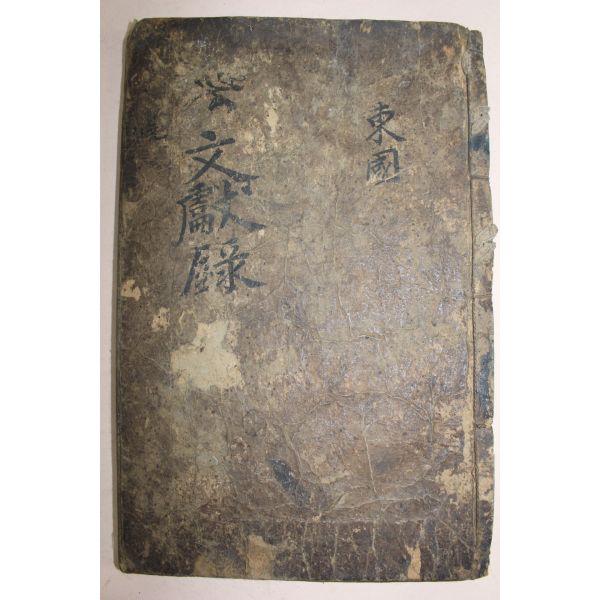 東國
文獻錄